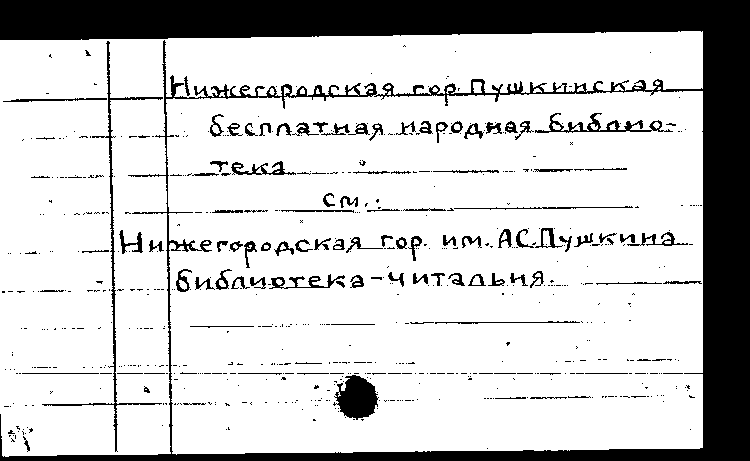 Нижегородская гор. Пушкинская
бесплатная народная библио-
тека
см.:
Нижегородская гор. им. А.С.Пушкина
библиотека-читальня.